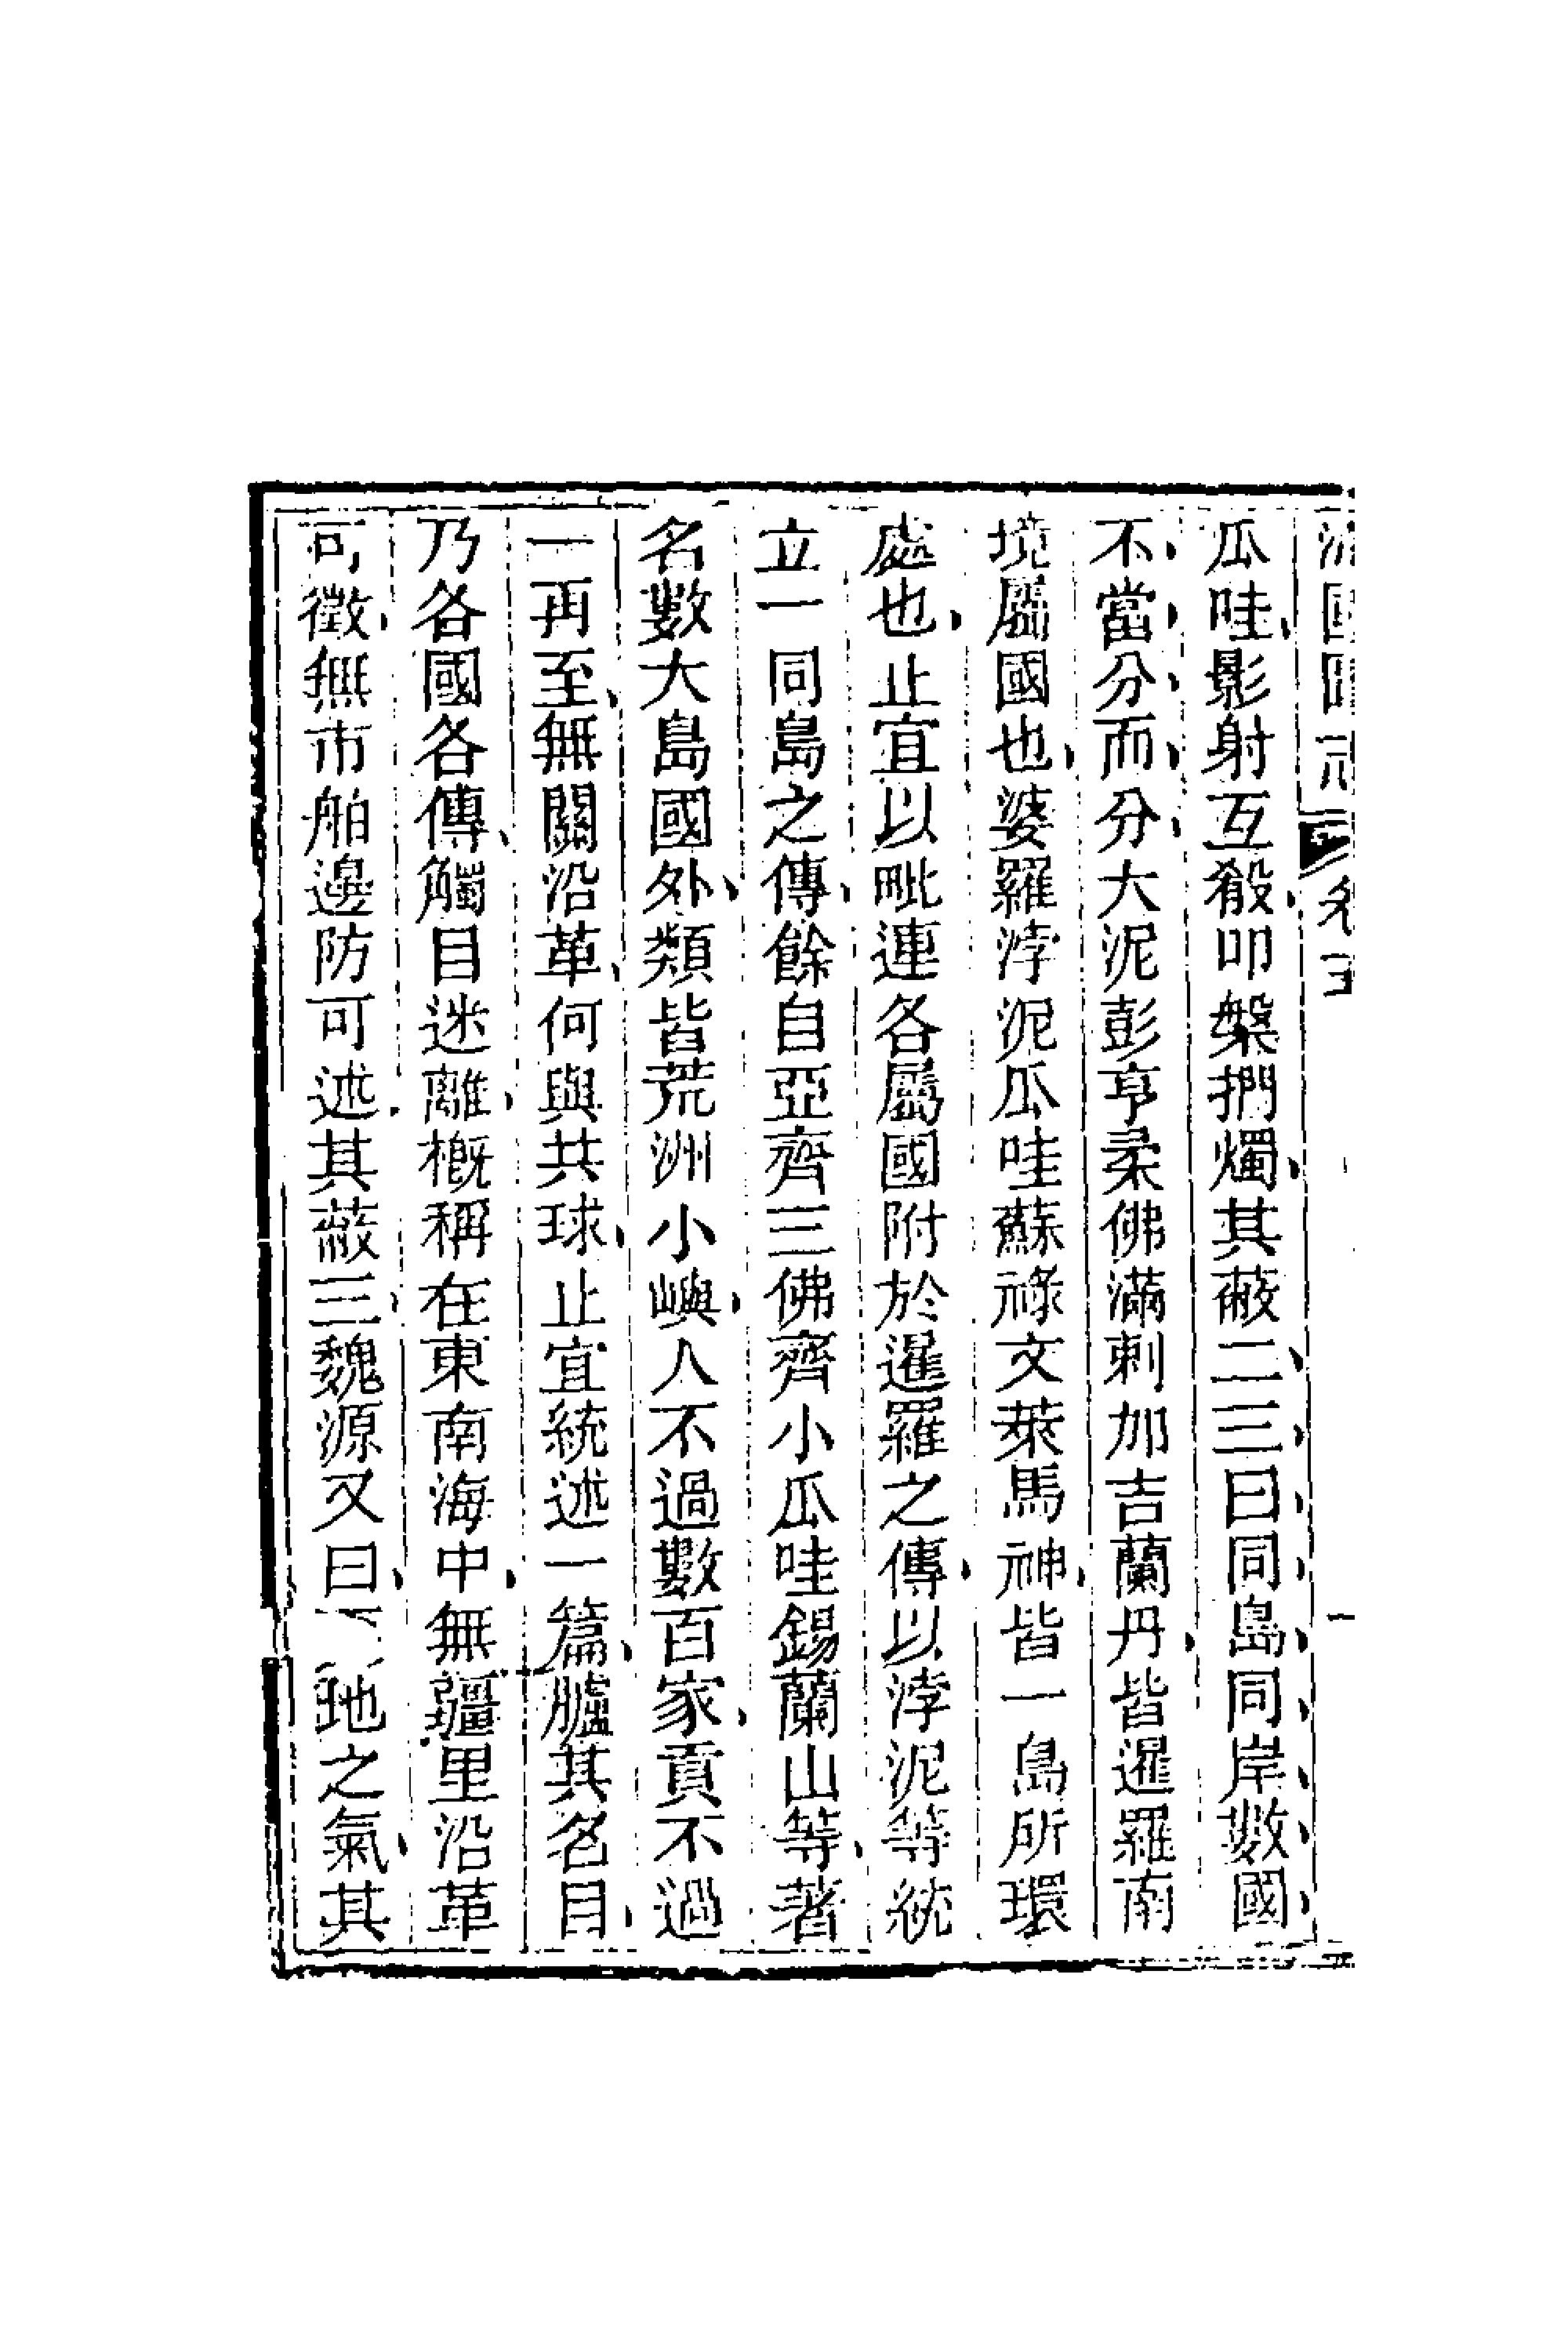 瓜哇影射互殽叩槃捫燭其蔽二三曰同島同岸數國
不當分而分大泥彭亨柔佛滿剌加吉蘭丹皆暹羅南
境屬國也婆羅浡泥瓜哇蘇祿文萊馬神皆一島所環
處也止宜以毗連各屬國附於暹羅之傳以浡泥等統
立一同島之傳餘自亞齊三佛齊小瓜哇錫蘭山等著
名數大島國外類皆荒洲小嶼人不過數百家貢不過
一再至無關沿革何與共球止宜統述一篇臚其名目
乃各國各傳觸目迷離槪稱在東南海中無疆里沿革
可徵無市舶邊防可述其蔽三魏源又曰地之氣其